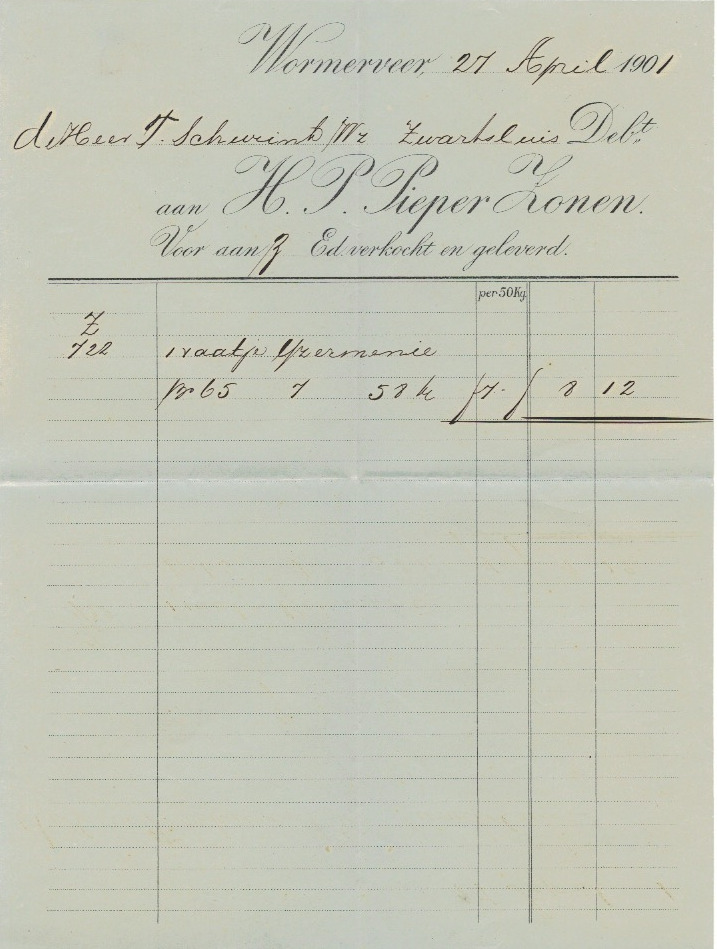 Wormerveer, 27 April 1901
de Heer T. Schurink Wz Zwartsluis Deb.t
aan H. P. Pieper Zonen.
Voor aan Z Ed. verkocht en geleverd.
per 50 Kg.
Z
722 1 vaatje Yzermenie
Br 65 7 58 k f 7.- f 8 12